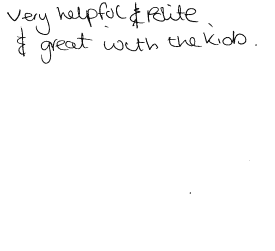 Very helpful & Polite
& great with the kids.